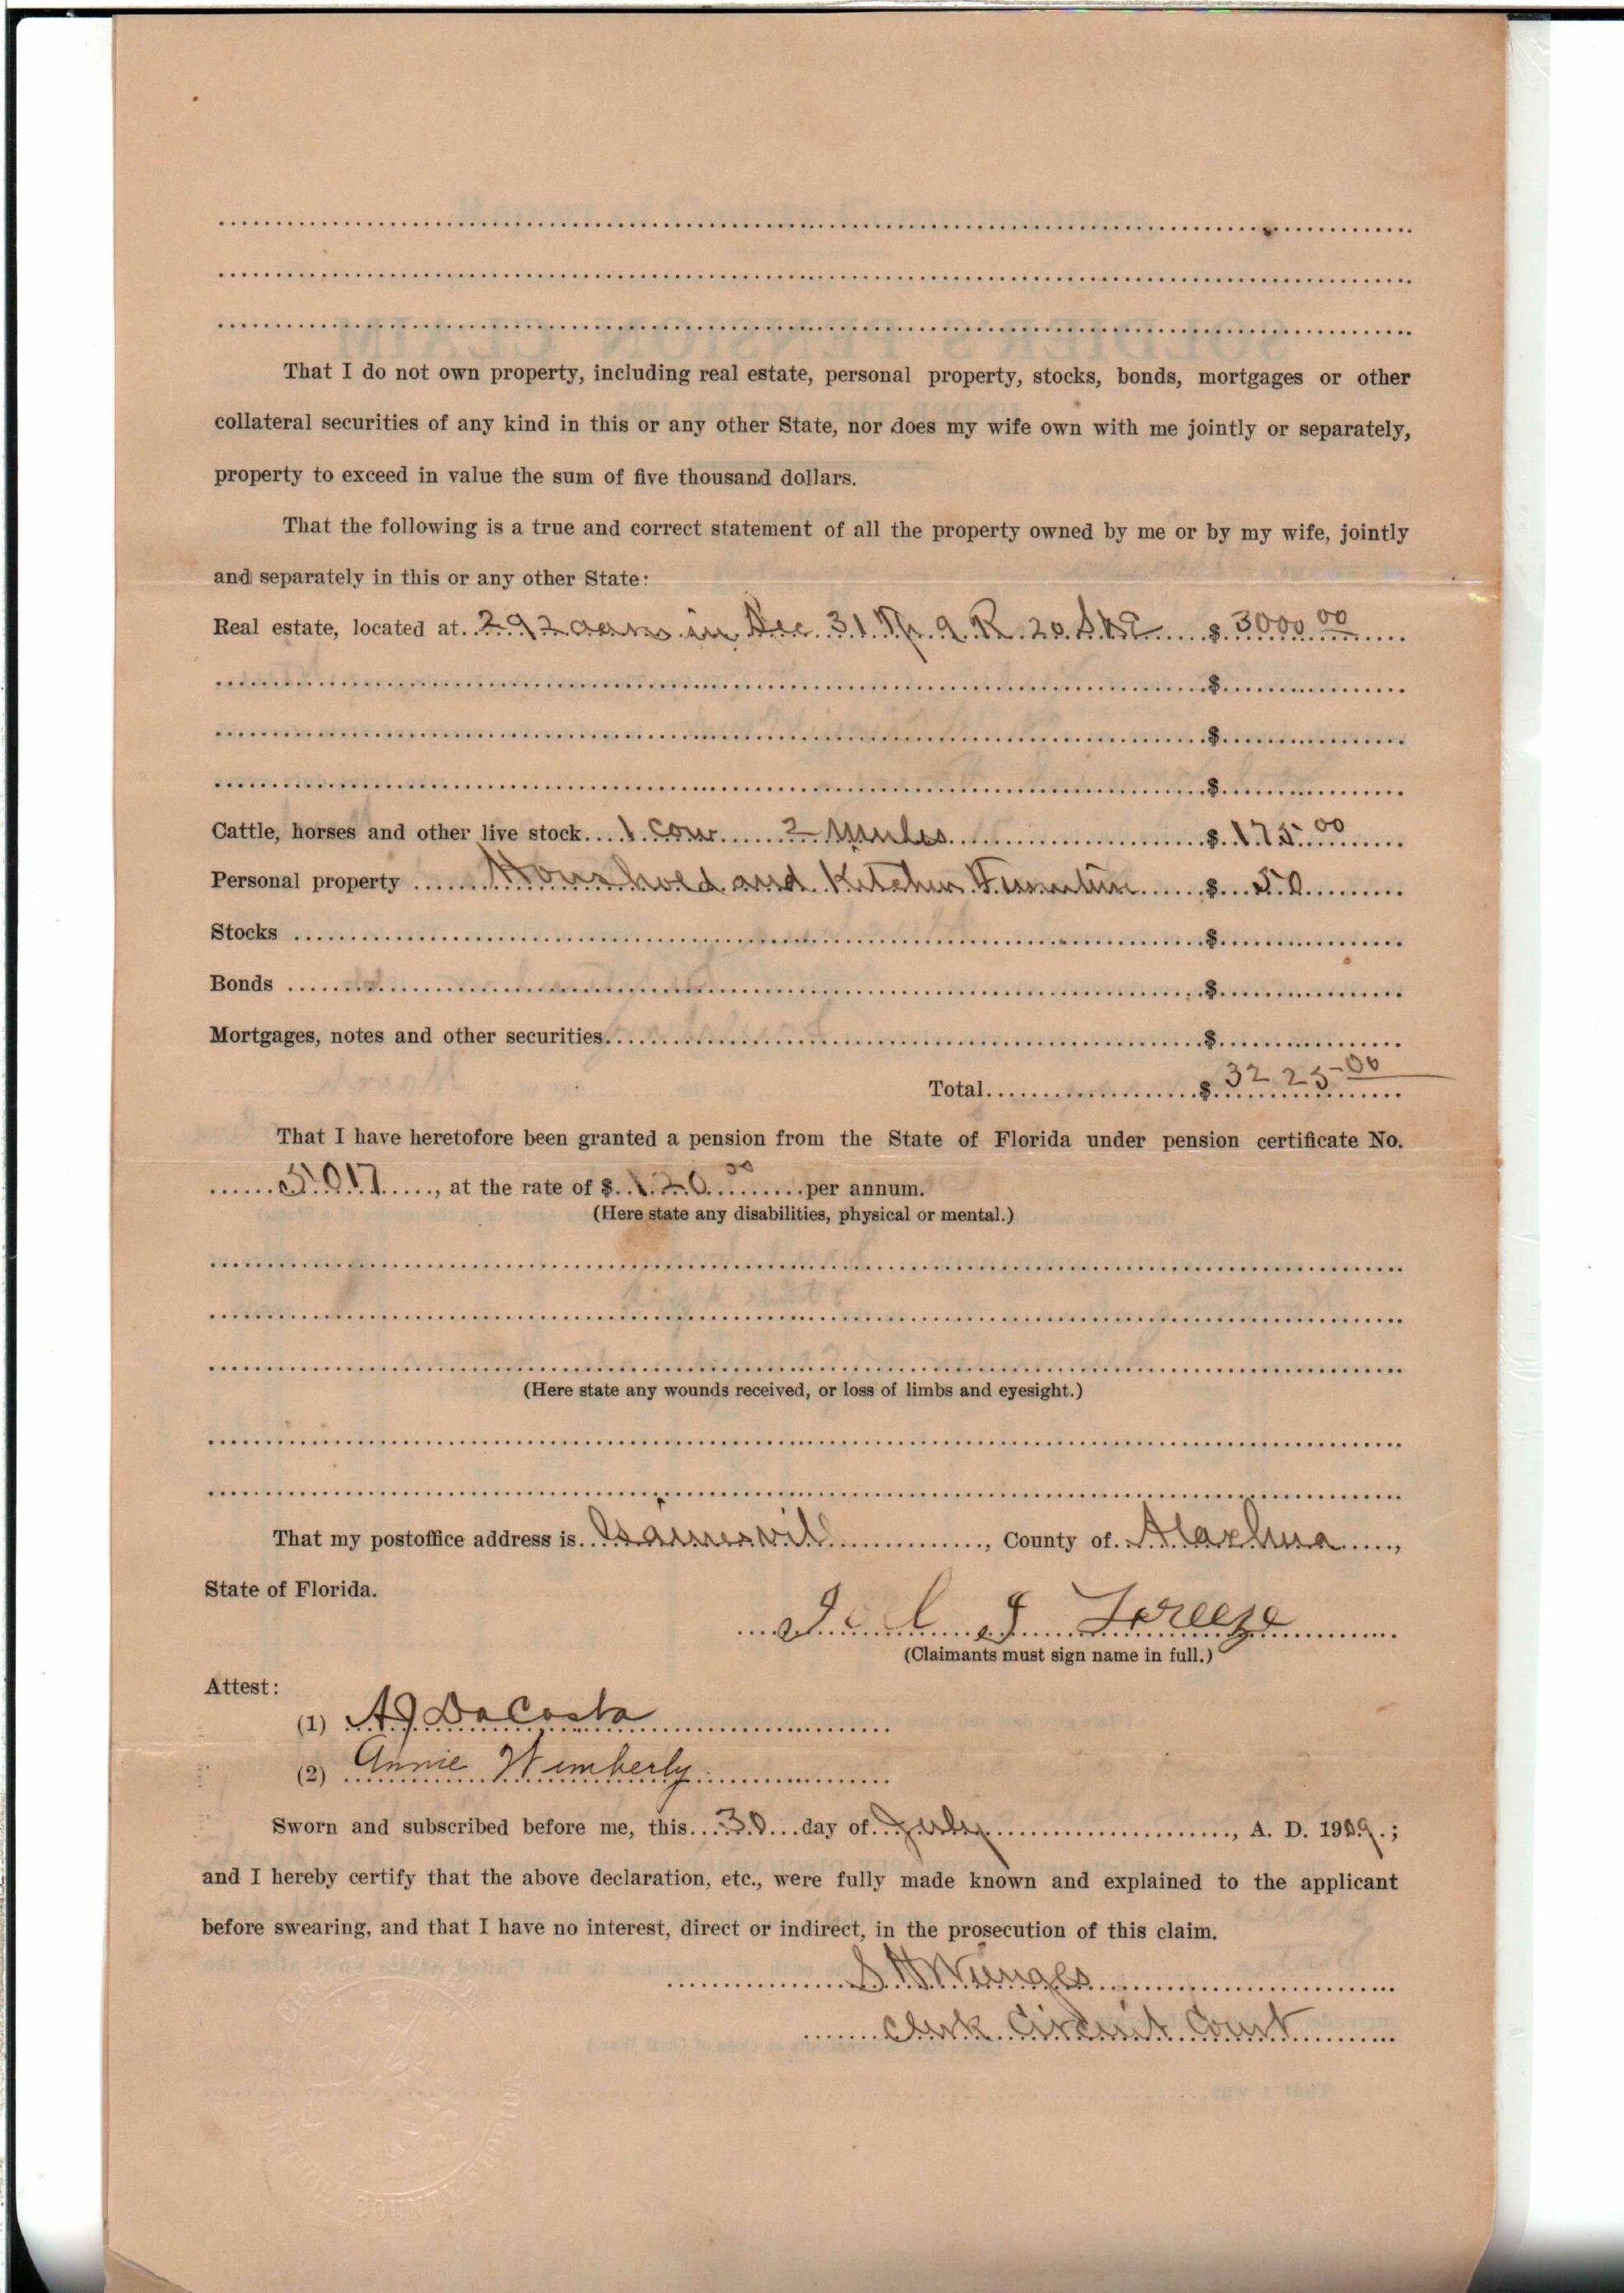 That I do not own property, including real estate, personal property, stocks, bonds, mortgages or other
collateral securities of any kind in this or any other State, nor does my wife own with me jointly or separately,
property to exceed in value the sum of five thousand dollars.
That the following is a true and correct statement of all the property owned by me or by my wife, jointly
and separately in this or any other State:
Real estate, located at 292 acres in Sec 31 Tp 9 R 20 S&E $ 3000 00
$
$
$
Cattle, horses and other live stock 1 cow 2 Mules $ 175 00
Personal property Houshold and Kitchen Furnitur $ 50
Stocks $
Bonds $
Mortgages, notes and other securities $
Total $ 3225 00
That I have heretofore been granted a pension from the State of Florida under pension certificate No.
5017, at the rate of $ 120 00 per annum.
(Here state any disabilities, physical or mental.)
(Here state any wounds received, or loss of limbs and eyesight.)
That my postoffice address is Gainesvill, County of Alachua,
State of Florida.
Joel J
(Claimants must sign name in full.)
Attest:
(1) AJ DaCosta
(2) Annie Wimberly
Sworn and subscribed before me, this 30 day of July, A. D. 1909.;
and I hereby certify that the above declaration, etc., were fully made known and explained to the applicant
before swearing, and that I have no interest, direct or indirect, in the prosecution of this claim.
S H Wienges
Clerk Circuit Court